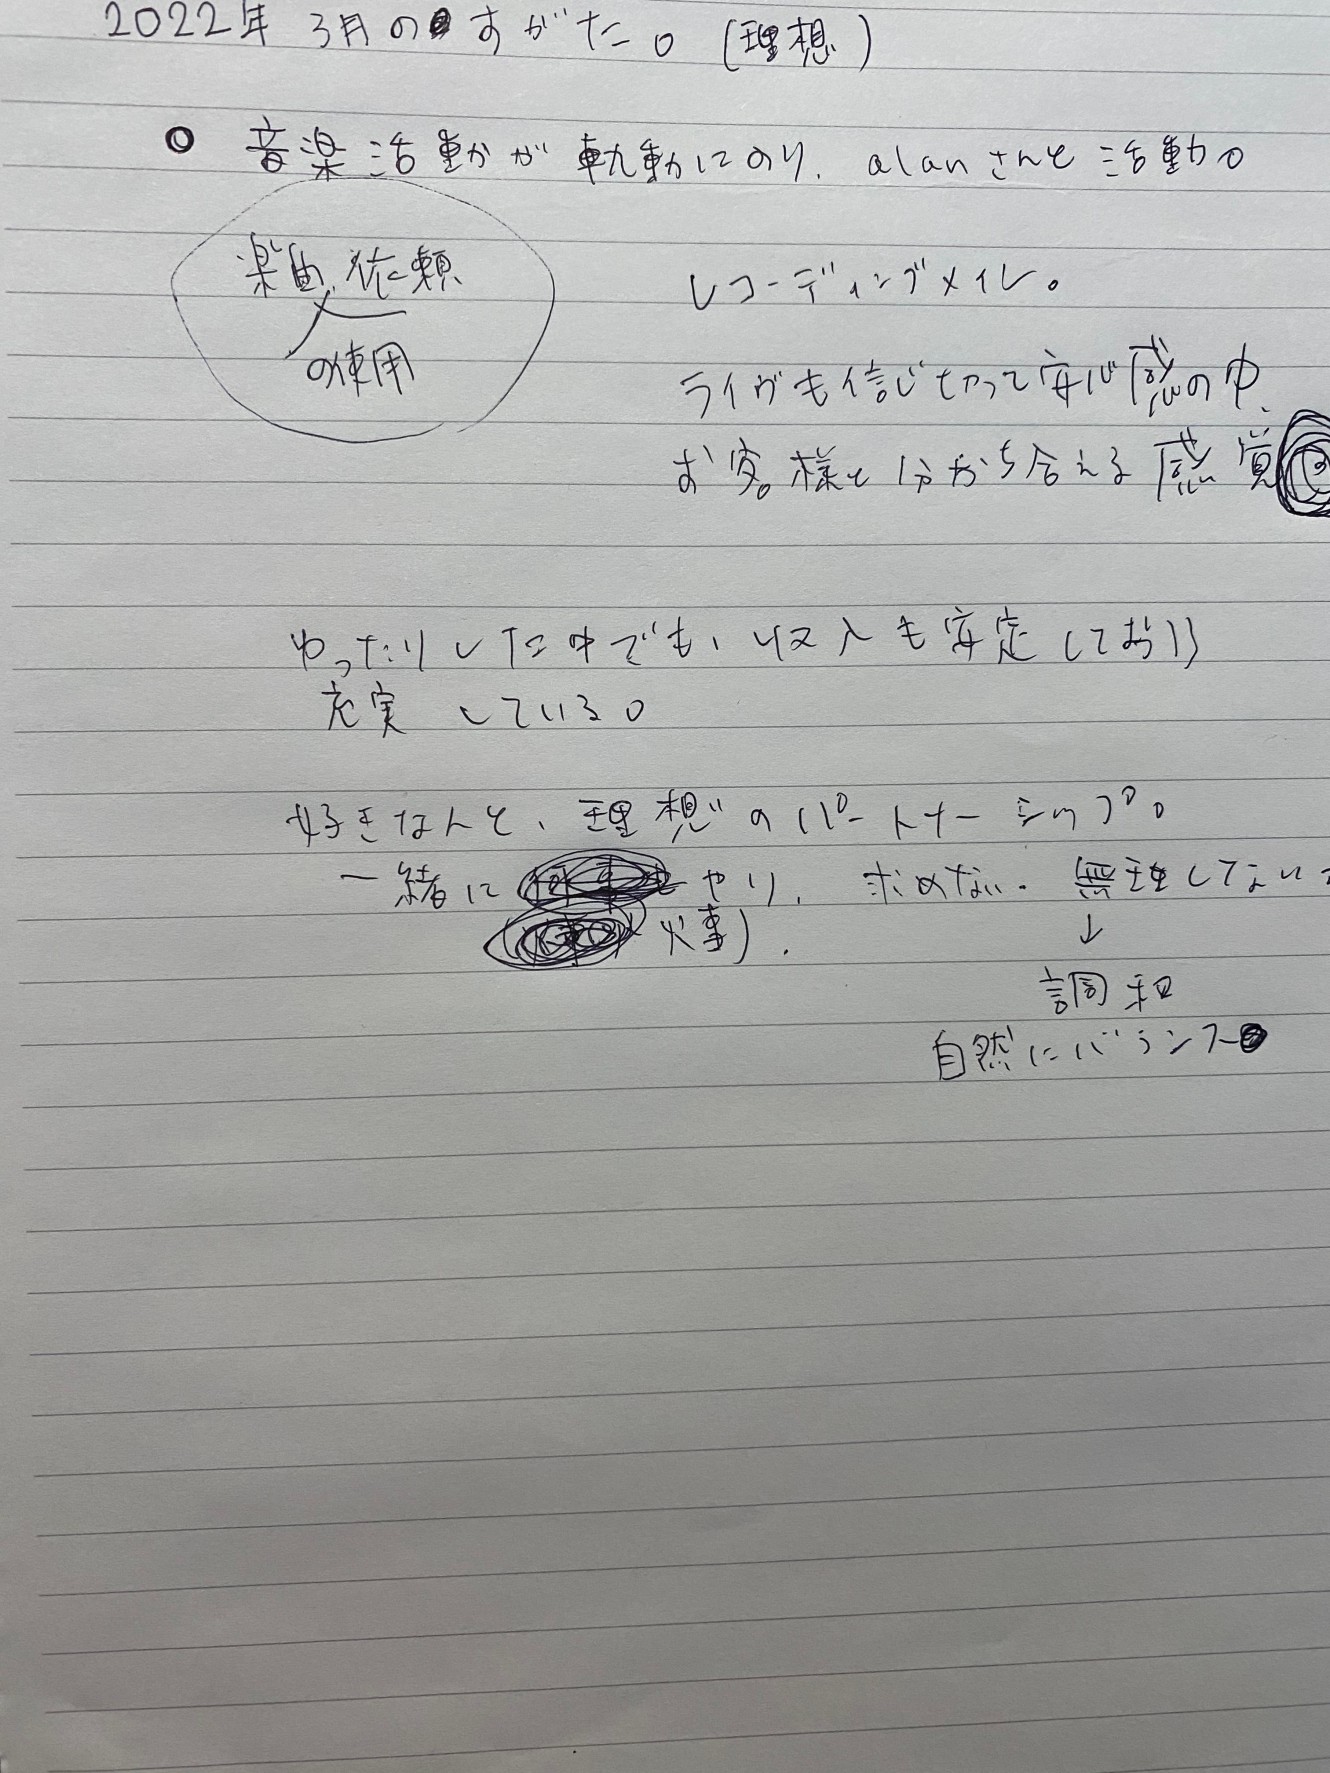 2022年 3月のすがた。(理想)
音楽活動かが軌動にのり、alanさんと活動。
楽曲 依頼
の使用
レコーディングメイン。
ライヴも信じ切って安心感の中、
お客様と分かち合える感覚
ゆったりした中でも、収入も安定しており
充実している。
好きなんと、理想のパートナーシップ。
一緒に やり、求めない。無理してない
事)
↓
調和
自然にバランス